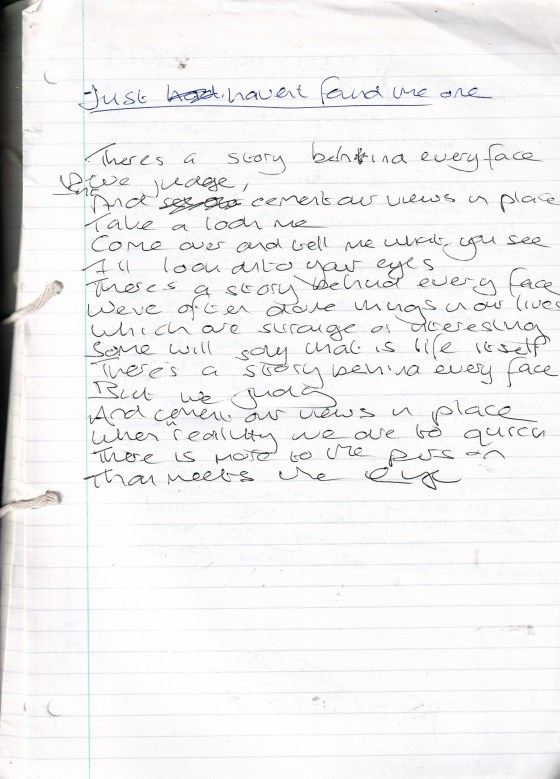 Just havent found the one
There's a story behind every face
But we judge,
And cement our views in place
Take a look me
Come over and tell me what you see
I'll look into your eyes
There's a story behind every face
We've often done things in our lives
Which are strange or interesting
Some will say that is life itself
There's a story behind every face
But we judg
And cement our views in place
When reality we are to quick
There is more to the person
Than meets the eye